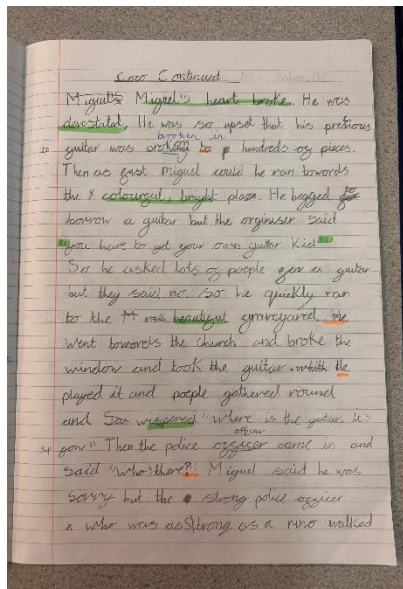 Coco Continued
Miguil's Miguel's heart broke. He was
devestated, He was so upset that his precious
broken in
sp guitar was broking to hundreds of pieces.
Then as fast Miguel could he ran towards
the colourful, bright plaza. He begged to
borrow a guitar but the orginiser said
"you have to get your own guitar Kid"
So he asked lots of poeple for a guitar
but they said no. So he quickly ran
to the beautiful graveyared. He
went towards the church and broke the
window and took the guitar. He
played it and poeple gathered round
and wispered "Where is the guitar, it's
officer
sp gon" Then the police officer came in and
said "Who's there?" Miguel said he was
sorry but the strong police officer
who was as strong as a rino walked